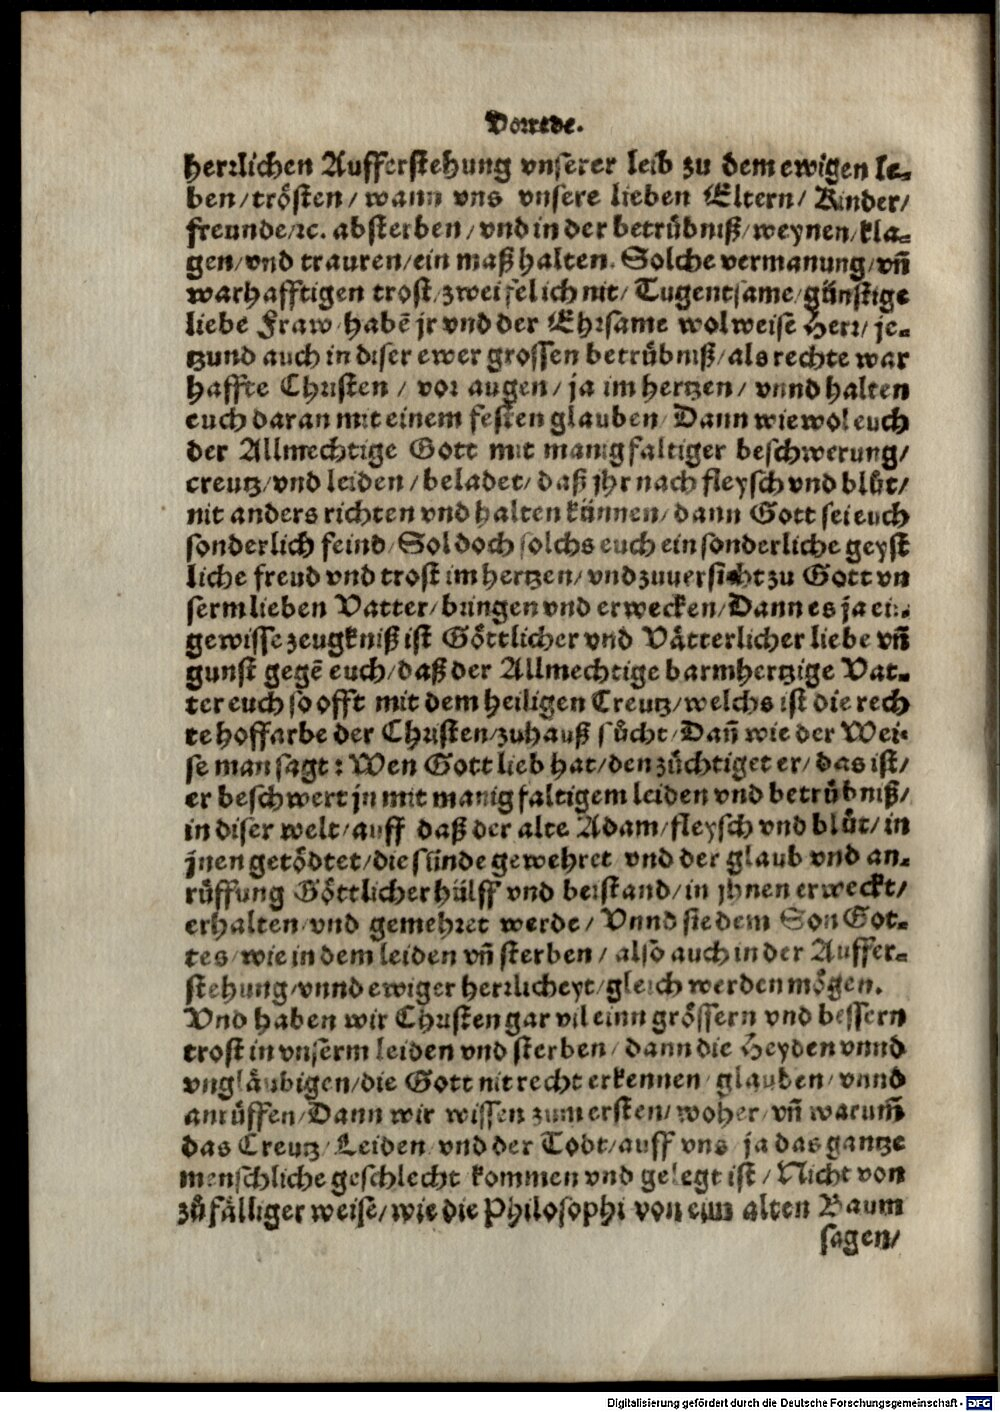 Vorrede.
herrlichen Aufferstehung vnserer leib zu dem ewigen le-
ben/ trösten/ wann vns vnsere lieben Eltern/ Kinder/
freunde/ ꝛc. absterben/ vnd in der betrübniß/ weynen/ kla-
gen/ vnd trauren/ ein maß halten. Solche vermanung/ vñ
warhafftigen trost/ zweifel ich nit/ Tugentsame/ günstige
liebe Fraw/ habē jr vnd der Ehrsame wolweise Herr/ je-
tzund auch in diser ewer grossen betrübniß/ als rechte war
haffte Christen/ vor augen/ ja im hertzen/ vnnd halten
euch daran mit einem festen glauben/ Dann wiewol euch
der Allmechtige Gott mit manigfaltiger beschwerung/
creutz/ vnd leiden/ beladet/ daß jhr nach fleysch vnd blůt/
nit anders richten vnd halten künnen/ dann Gott sei euch
sonderlich feind/ Sol doch solchs euch ein sonderliche geyst
liche freud vnd trost im hertzen/ vnd zuuersicht zu Gott vn
serm lieben Vatter/ bringen vnd erwecken/ Dann es ja ein
gewisse zeugkniß ist Göttlicher vnd Vätterlicher liebe vñ
gunst gegē euch/ daß der Allmechtige barmhertzige Vat-
ter euch so offt mit dem heiligen Creutz/ welchs ist die rech
te hoffarbe der Christen/ zuhauß sůcht/ Dañ wie der Wei-
se man sagt: Wen Gott lieb hat/ den züchtiget er/ das ist/
er beschwert jn mit manigfaltigem leiden vnd betrübniß/
in diser welt/ auff daß der alte Adam/ fleysch vnd blůt/ in
jnen getödtet/ die sünde gewehret/ vnd der glaub vnd an-
rüffung Göttlicher hülff vnd beistand/ in jhnen erweckt/
erhalten/ vnd gemehret werde/ Vnnd sie dem Son Got-
tes/ wie in dem leiden vñ sterben/ also auch in der Auffer-
stehung/ vnnd ewiger herrlicheyt/ gleich werden mögen.
Vnd haben wir Christen gar vil einn grössern vnd bessern
trost in vnserm leiden vnd sterben/ dann die Heyden vnnd
vngläubigen/ die Gott nit recht erkennen/ glauben/ vnnd
anrüffen/ Dann wir wissen zum ersten/ woher/ vñ warum̃
das Creutz/ Leiden/ vnd der Todt/ auff vns/ ja das gantze
menschliche geschlecht kommen vnd gelegt ist/ Nicht von
zůfälliger weise/ wie die Philosophi von eim alten Baum
sagen/
Digitalisierung gefördert durch die Deutsche Forschungsgemeinschaft - DFG